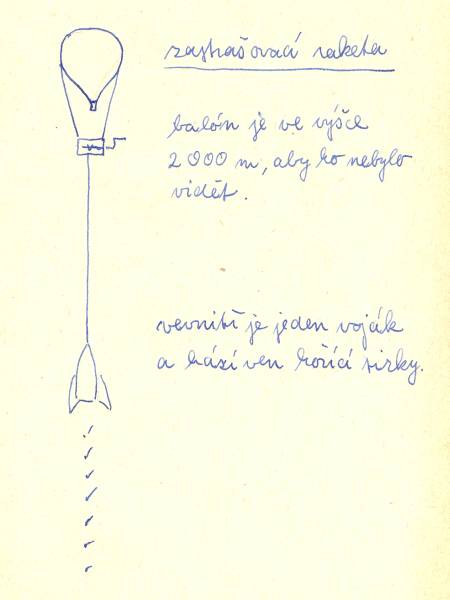 zastrašovací raketa
balón je ve výšce
2000 m, aby ho nebylo
vidět.
vevnitř je jeden voják
a hází ven hořící sirky.